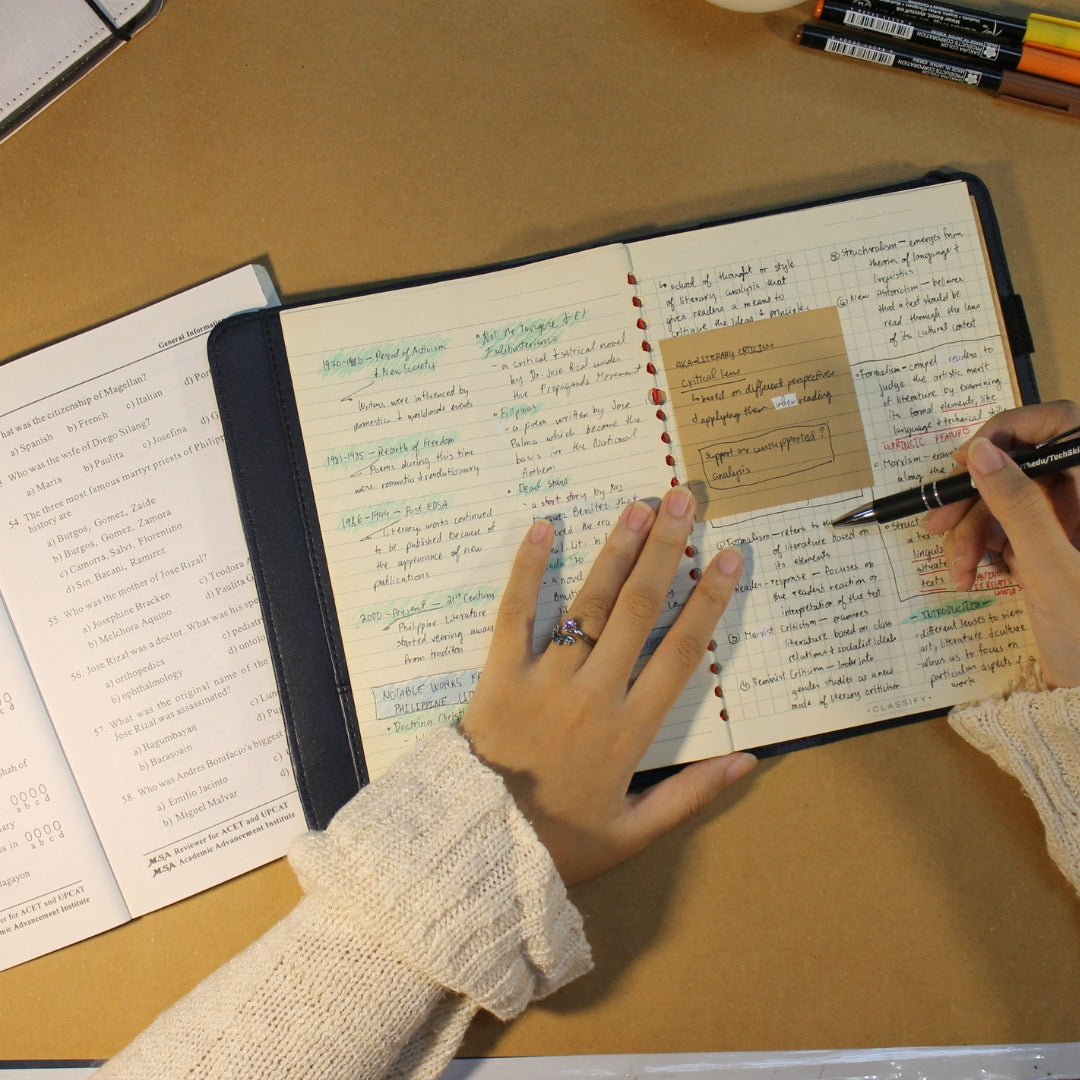 General Information
hat was the citizenship of Magellan?
a) Spanish b) French c) Italian d) Por
Who was the wife of Diego Silang?
a) Maria b) Paulita c) Josefina d) G
54. The three most famous martyr priests of Philipp
history are
a) Burgos, Gomez, Zaide
b) Burgos, Gomez, Zamora
c) Camorra, Salvi, Florentino
d) Sin, Bacani, Ramirez
55. Who was the mother of Jose Rizal?
a) Josephine Bracken c) Teodora A
b) Melchora Aquino d) Paulita G
56. Jose Rizal was a doctor. What was his spe
a) orthopedics c) pediatr
b) ophthalmology d) ontolo
57. What was the original name of the
Jose Rizal was assassinated?
a) Bagumbayan c) Lun
b) Barasoain d) Pu
58. Who was Andres Bonifacio's biggest
a) Emilio Jacinto c)
b) Miguel Malvar d)
MSA Reviewer for ACET and UPCAT
MSA Academic Advancement Institute
shah of
a b c d
s in
a b c d
lagayon
er for ACET and UPCAT
mic Advancement Institute
1970-1980 - Period of Activism
& New Society
Writers were influenced by
domestic & worldwide events
1981-1985 - Rebirth of Freedom
Poems during this time
were romantic & revolutionary
1986-1999 - Post EDSA
Literary works continued
to be published because of
the appearance of new
publications
2000 - Present - 21st Century
Philippine Literature
started veering away
from tradition
NOTABLE WORKS
PHILIPPINE LIT
• Doctrina Christ
• Noli Me Tangere & El
Filibusterismo
- a critical & satirical novel
by Dr. Jose Rizal under
the Propaganda Movement
• Filipinas
- a poem written by Jose
Palma which became the
basis for the National
Anthem
• Dead Stars
- a short story by Paz
Marquez Benitez that
the era
- a novel
school of thought or style
of literary analysis that
gives readers a means to
critique the ideas & principles
AKA LITERARY CRITICISM
Critical Lens
based on different perspectives
& applying them when reading
support or unsupported?
analysis
① Formalism - refers to the
of literature based on
its elements
Reader-response - focuses on
the readers reaction or
interpretation of the text
③ Marxist Criticism - examines
literature based on class
relations & socialist ideals
④ Feminist Criticism - looks into
gender studies as a new
mode of literary criticism
⑤ Structuralism - emerges from
theories of language &
linguistics
⑥ New Historicism - believes
that a text should be
read through the lens
of its cultural context
• Formalism - compel readers to
judge the artistic merit
of literature by examining
its formal elements, like
language & technical skill
INTRINSIC FEATURES
• Marxism - exam
along the
• Struct
a te
linguis
situate
texts
- INTRODUCTION -
- different lenses to view
art, literature & culture
- allows us to focus on
particular aspects of a
work
• CLASSIFY •
SAKURA COLOR
PRODUCTS CORPORATION
MADE IN JAPAN
SAKURA COLOR
PRODUCTS CORPORATION
MADE IN JAPAN